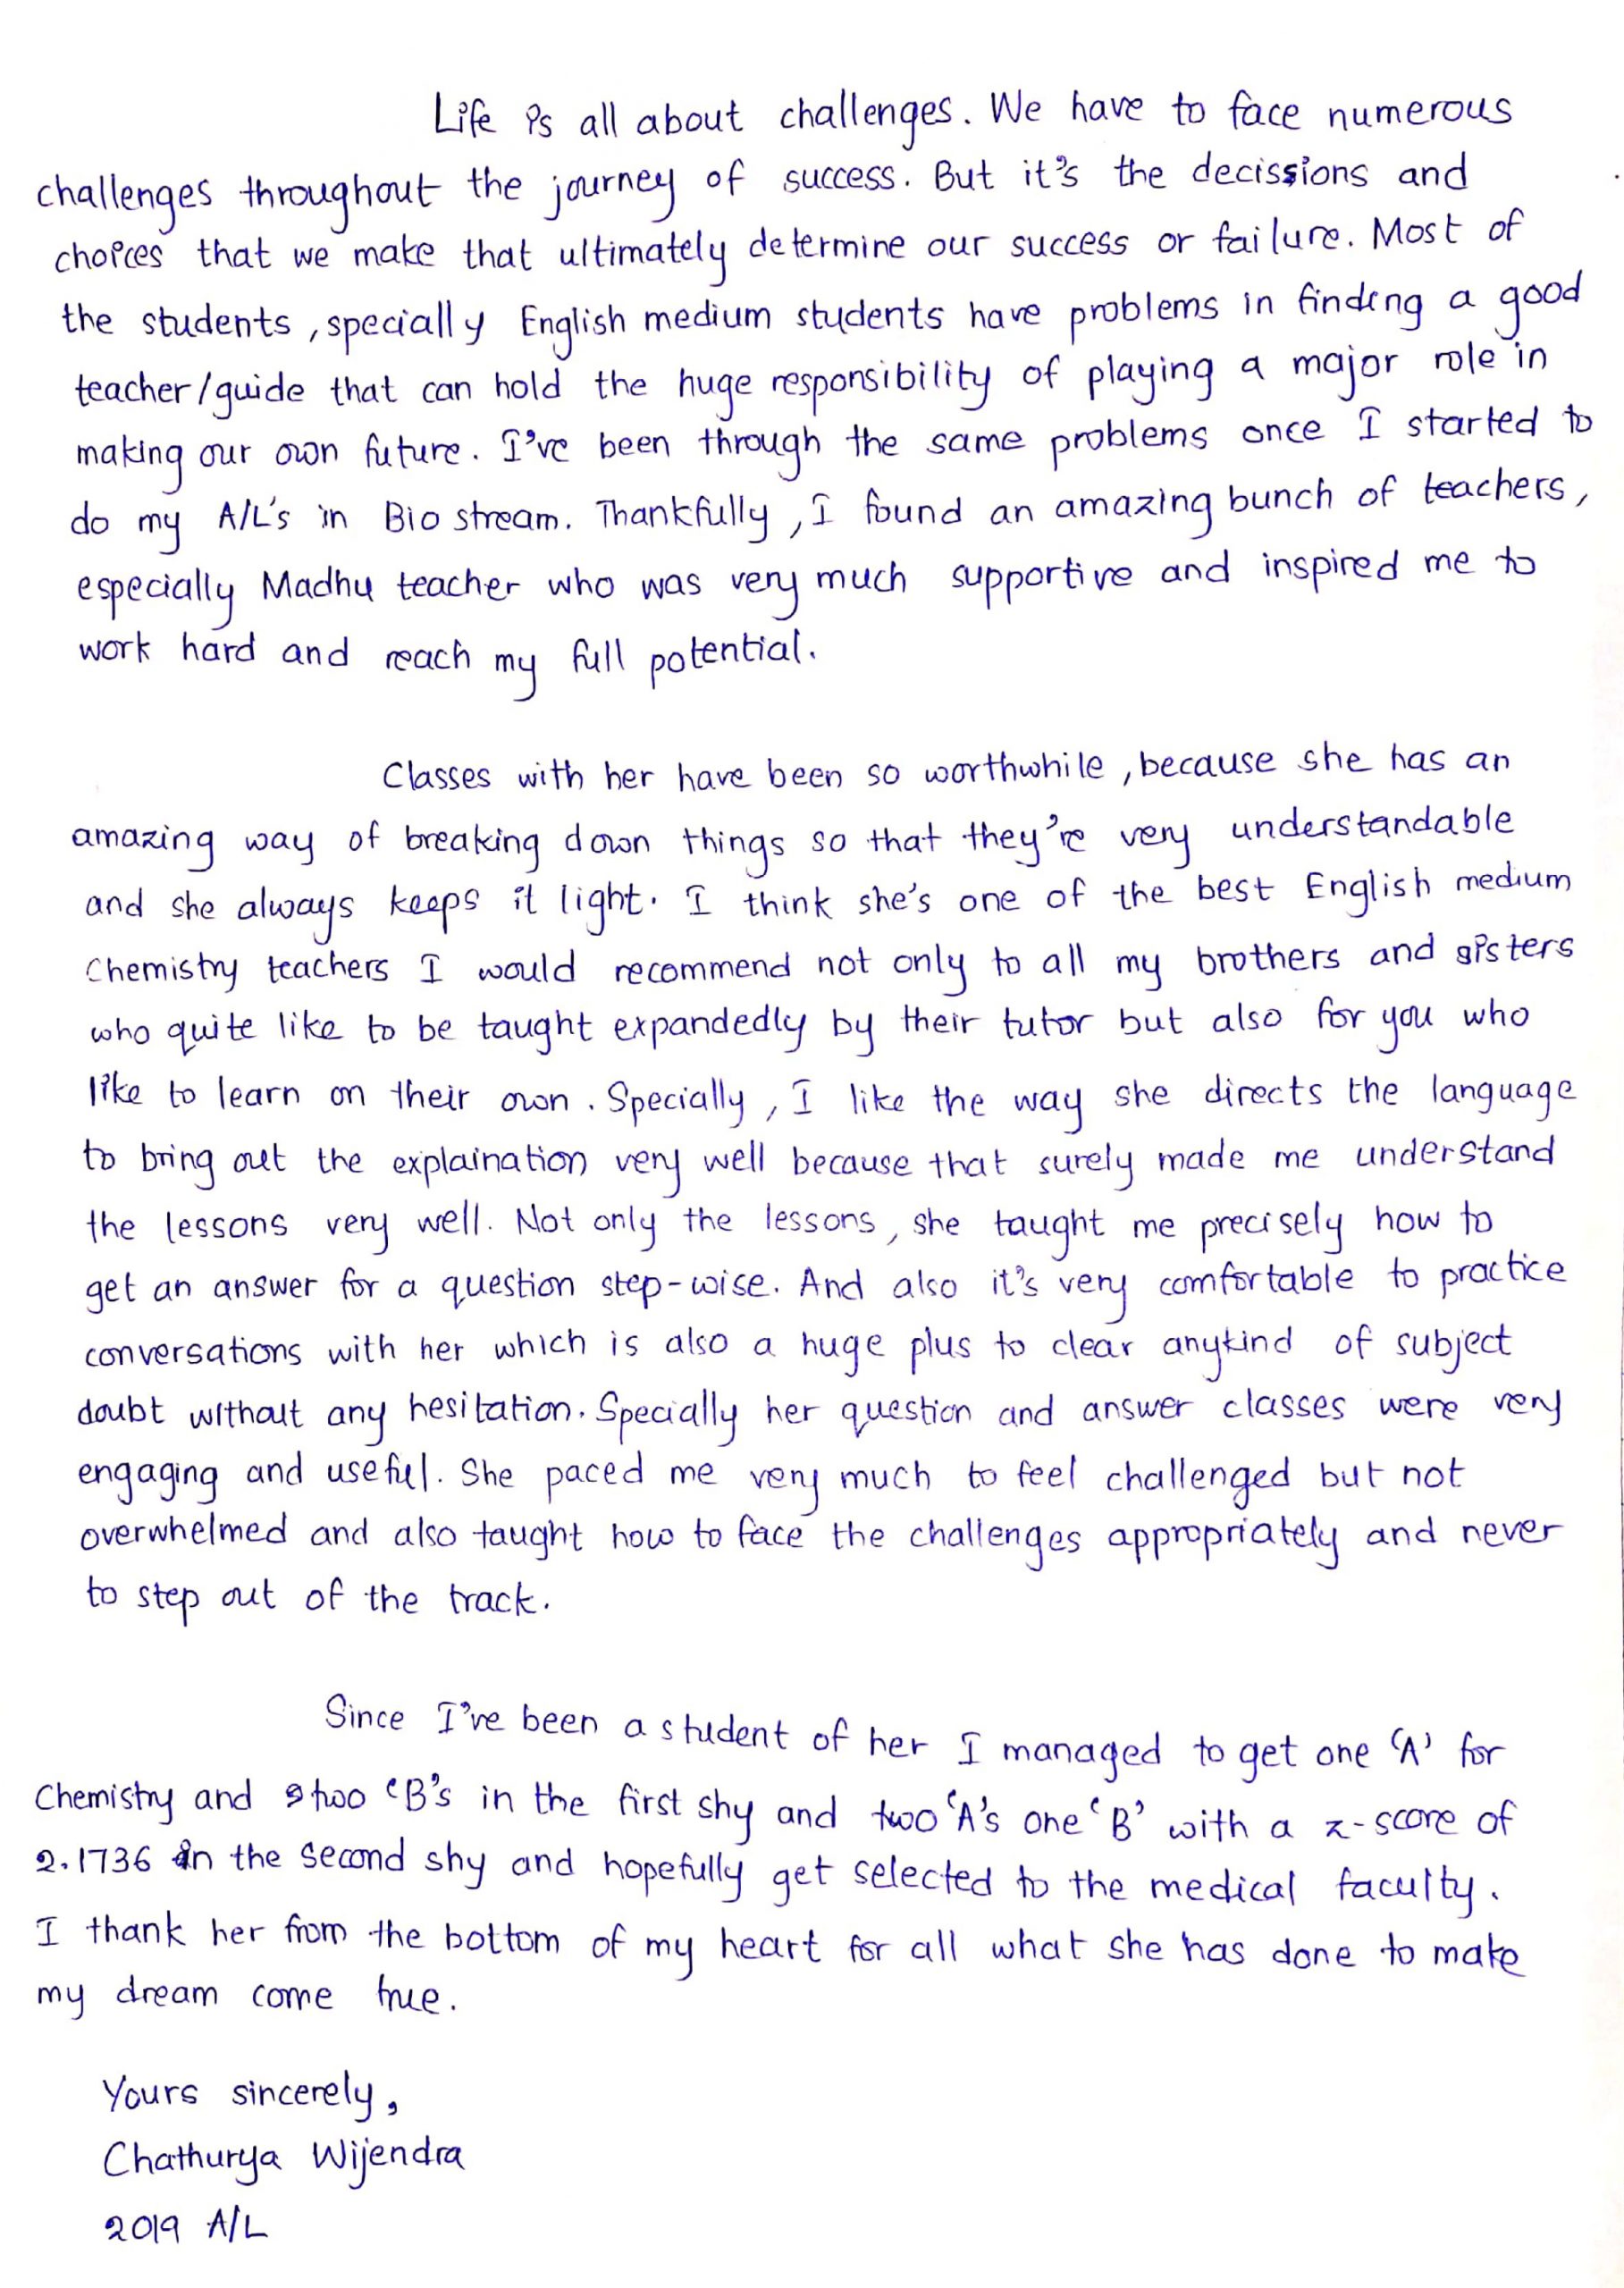 Life is all about challenges. We have to face numerous
challenges throughout the journey of success. But it's the decissions and
choices that we make that ultimately determine our success or failure. Most of
the students, specially English medium students have problems in finding a good
teacher/guide that can hold the huge responsibility of playing a major role in
making our own future. I've been through the same problems once I started to
do my A/L's in Bio stream. Thankfully, I found an amazing bunch of teachers,
especially Madhu teacher who was very much supportive and inspired me to
work hard and reach my full potential.
Classes with her have been so worthwhile, because she has an
amazing way of breaking down things so that they're very understandable
and she always keeps it light. I think she's one of the best English medium
Chemistry teachers I would recommend not only to all my brothers and sisters
who quite like to be taught expandedly by their tutor but also for you who
like to learn on their own. Specially, I like the way she directs the language
to bring out the explaination very well because that surely made me understand
the lessons very well. Not only the lessons, she taught me precisely how to
get an answer for a question step-wise. And also it's very comfortable to practice
conversations with her which is also a huge plus to clear anykind of subject
doubt without any hesitation. Specially her question and answer classes were very
engaging and useful. She paced me very much to feel challenged but not
overwhelmed and also taught how to face the challenges appropriately and never
to step out of the track.
Since I've been a student of her I managed to get one 'A' for
Chemistry and two 'B's in the first shy and two 'A's one 'B' with a z-score of
2.1736 in the second shy and hopefully get selected to the medical faculty.
I thank her from the bottom of my heart for all what she has done to make
my dream come true.
Yours sincerely,
Chathurya Wijendra
2019 A/L